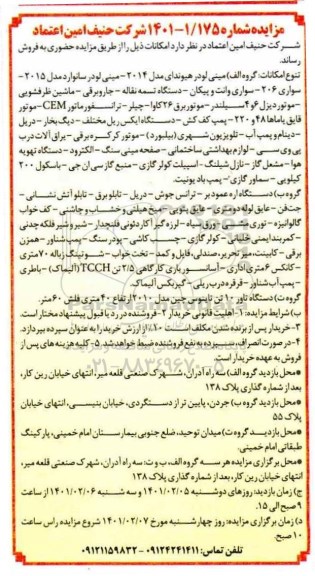 مزایده شماره ۱۴۰۱-۱/۱۷۵ شرکت حنیف امین اعتماد
شرکت حنیف امین اعتماد در نظر دارد امکانات ذیل را از طریق مزایده حضوری به فروش
رساند.
تنوع امکانات: گروه الف) مینی لودر هیوندای مدل ۲۰۱۴ - مینی لودر سانوارد مدل ۲۰۱۵ -
سواری ۲۰۶ - سواری وانت و پیکان - دستگاه تسمه نقاله - جاروبرقی - ماشین ظرفشویی
- موتور دیزل ۴و۶ سیلندر - موتوربرق ۲۶ کاوا - چیلر - ترانسفورماتور CEM - موتور
قایق یاماها ۴۸ و ۲۲۰ - پمپ کف کش - دستگاه ایکس ری بل مختلف - دیگ بخار - دریل
- دینام و پمپ آب - تلویزیون شهری (بیلبورد) - موتور کرکره برقی - یراق آلات درب
پی وی سی - لوازم بهداشتی ساختمانی - صفحه مینی سنگ - الکترود - دستگاه تهویه
هوا - مشعل گاز - نازل شیلنگ - اسپیلت کولر گازی - منبع گاز سی ان جی - باسکول ۲۰۰
کیلویی - سماور گازی - پمپ باد یونیت.
گروه ب) دستگاه اره عمودبر - ترانس جوش - دریل - تابلو برق - تابلو آتش نشانی -
جت فن - عایق لوله دو متری - عایق پتویی - میخ هیلتی و خشاب و چاشنی - کف خواب
گالوانیزه - توری
- کمربند ایمنی خلبانی - کولر گازی - چسب کاشی - پودر سنگ - پمپ شناور - همزن
برقی - کابینت، میز تحریر، صندلی، فایل و کمد - تخت خواب - شوتینگ زباله ۷۰ متری
- کانکس ۶ متری اداری - آسانسور باری کارگاهی ۲/۵ تن TCCH (آلیماک) - باطری
- پمپ آب شناور - قرقره درب ریلی - گیربکس آلیماک.
گروه ت) دستگاه تاور ۱۰ تن تاپلس چین مدل ۲۰۱۰ ارتفاع ۴۰ متری فلش ۶۰ متر.
ب) شرایط مزایده: ۱- اهلیت قانونی خریدار ۲- فروشنده در رد یا قبول پیشنهاد مختار است.
۳- خریدار پس از برنده شدن مکلف است ۱۰٪ از ارزش خرید را به عنوان سپرده بپردازد.
۴- در صورت انصراف، سپرده به نفع فروشنده ضبط خواهد شد. ۵- کلیه هزینه های پس از
فروش به عهده خریدار است.
محل بازدید گروه الف)، سه راه آدران، شهرک صنعتی قلعه میر، انتهای خیابان رین کار،
بعد از شماره گذاری پلاک ۱۳۸
محل بازدید گروه ب) جردن، پایین تر از دستگردی، خیابان بنیسی، انتهای خیابان
پلاک ۵۵
محل بازدید گروه ت) میدان توحید، ضلع جنوبی بیمارستان امام خمینی، پارکینگ
طبقاتی امام خمینی.
محل برگزاری مزایده هر سه گروه الف، ب و ت: سه راه آدران، شهرک صنعتی قلعه میر،
انتهای خیابان رین کار، بعد از شماره گذاری پلاک ۱۳۸
ج) زمان بازدید: روزهای دوشنبه ۱۴۰۱/۰۲/۰۵ و سه شنبه ۱۴۰۱/۰۲/۰۶ از ساعت
۹ صبح الی ۱۵.
د) زمان برگزاری مزایده: روز چهارشنبه مورخ ۱۴۰۱/۰۲/۰۷ شروع مزایده راس ساعت
۱۰ صبح.
تلفن تماس: ۰۹۱۲۴۲۴۱۴۱۱ - ۰۹۱۲۱۱۵۹۸۳۲